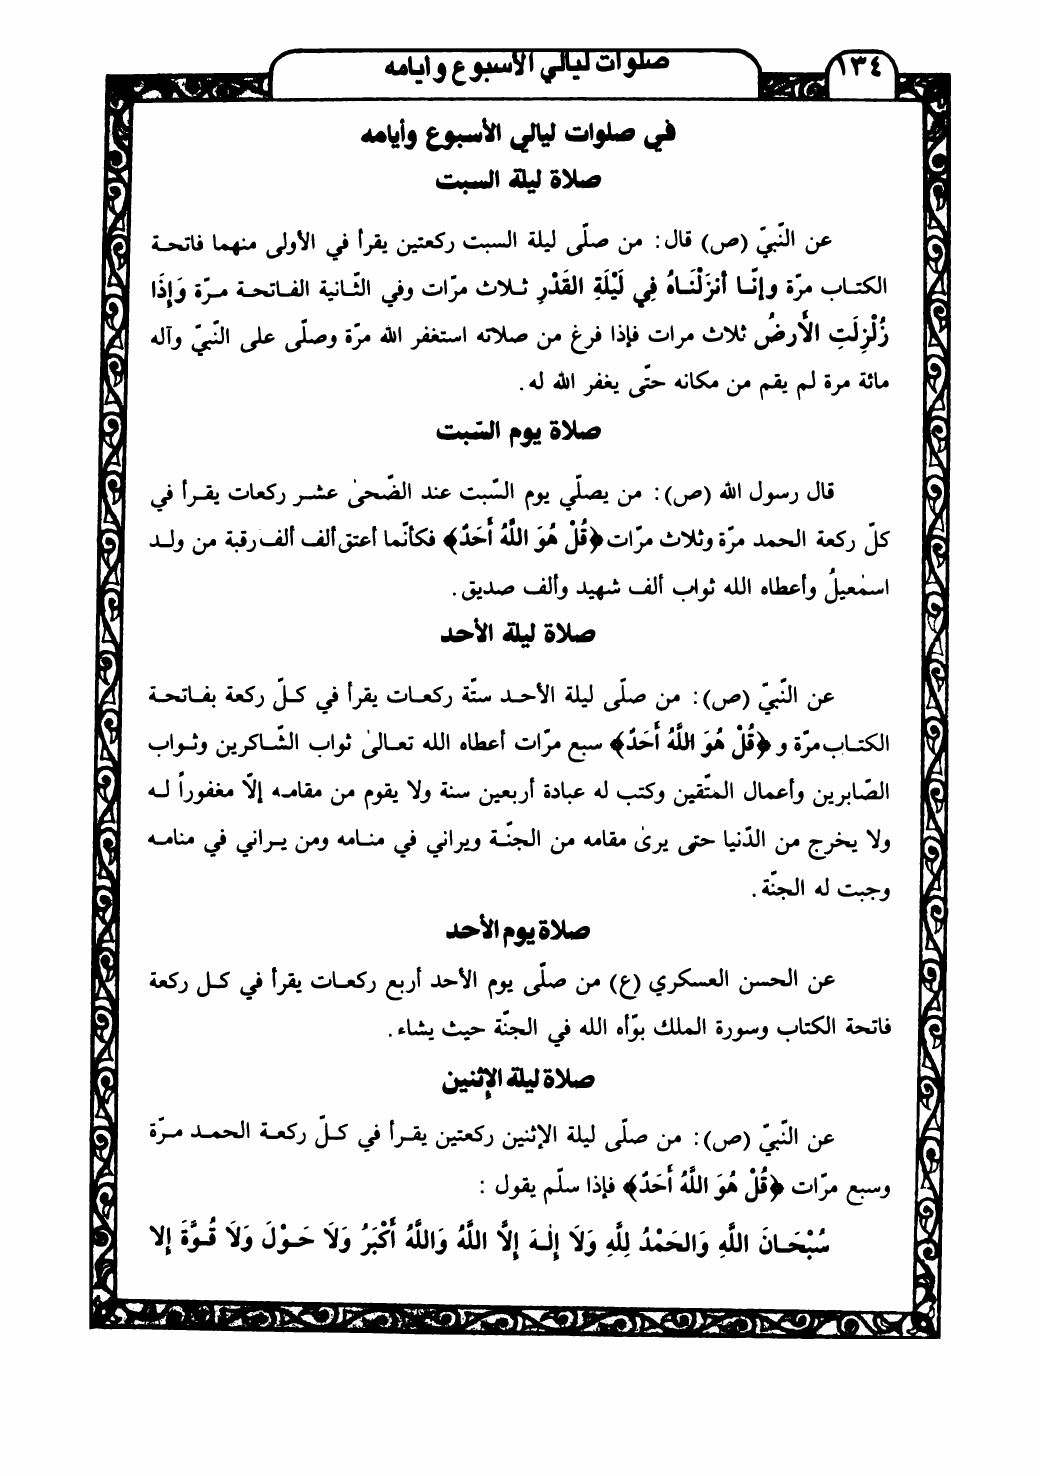 ١٣٤
صلوات ليالي الأسبوع وأيامه
في صلوات ليالي الأسبوع وأيامه
صلاة ليلة السبت
عن النّبيّ (ص) قال: من صلّى ليلة السبت ركعتين يقرأ في الأولى منهما فاتحة
الكتاب مرّة وإنّا أنزَلْنَاهُ فِي لَيْلَةِ القَدْرِ ثلاث مرّات وفي الثّانية الفاتحة مرّة وَإِذَا
زُلْزِلَتِ الأَرضُ ثلاث مرات فإذا فرغ من صلاته استغفر الله مرّة وصلّى على النّبيّ وآله
مائة مرة لم يقم من مكانه حتّى يغفر الله له.
صلاة يوم السّبت
قال رسول الله (ص): من يصلّي يوم السّبت عند الضّحىٰ عشر ركعات يقرأ في
كلّ ركعة الحمد مرّة وثلاث مرّات ﴿قُلْ هُوَ اللَّهُ أَحَدٌ﴾ فكأنّما أعتق ألف ألف رقبة من ولد
اسمٰعيلُ وأعطاه الله ثواب ألف شهيد وألف صديق.
صلاة ليلة الأحد
عن النّبيّ (ص): من صلّى ليلة الأحد ستّة ركعات يقرأ في كلّ ركعة بفاتحة
الكتاب مرّة و ﴿قُلْ هُوَ اللَّهُ أَحَدٌ﴾ سبع مرّات أعطاه الله تعالىٰ ثواب الشّاكرين وثواب
الصّابرين وأعمال المتّقين وكتب له عبادة أربعين سنة ولا يقوم من مقامه إلاّ مغفوراً له
ولا يخرج من الدّنيا حتى يرىٰ مقامه من الجنّة ويراني في منامه ومن يراني في منامه
وجبت له الجنّة.
صلاة يوم الأحد
عن الحسن العسكري (ع) من صلّى يوم الأحد أربع ركعات يقرأ في كل ركعة
فاتحة الكتاب وسورة الملك بوّأه الله في الجنّة حيث يشاء.
صلاة ليلة الإثنين
عن النّبيّ (ص): من صلّى ليلة الإثنين ركعتين يقرأ في كلّ ركعة الحمد مرّة
وسبع مرّات ﴿قُلْ هُوَ اللَّهُ أَحَدٌ﴾ فإذا سلّم يقول :
سُبْحَانَ اللَّهِ وَالحَمْدُ لِلَّهِ وَلَا إِلٰهَ إِلَّا اللَّهُ وَاللَّهُ أَكْبَرُ وَلَا حَوْلَ وَلَا قُوَّةَ إِلا